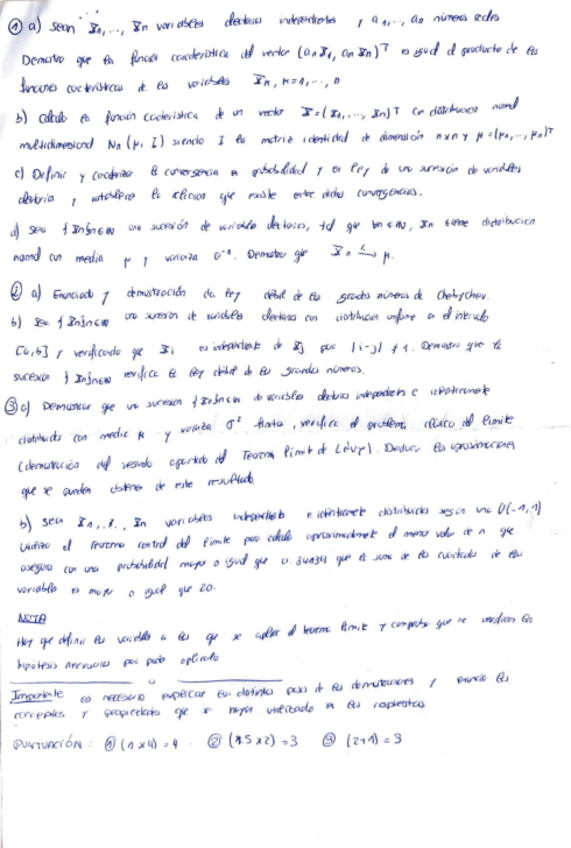 ① a) Sean X1,..., Xn variables aleatorias independientes y a1,..., an números reales
Demostrar que la función característica del vector (a1X1, anXn)^T es igual al producto de las
funciones características de las variables Xk, k=1,..., n
b) Calcula la función característica de un vector X=(X1,..., Xn)^T con distribución normal
multidimensional Nn(μ, I) siendo I la matriz identidad de dimensión nxn y μ=(μ1,..., μn)^T
c) Definir y caracterizar la convergencia en probabilidad y en ley de una sucesión de variables
aleatorias y establecer la relación que existe entre dichas convergencias.
d) sea {Xn}n∈N una sucesión de variables aleatorias, tal que ∀n∈N, Xn tiene distribución
normal con media μ y varianza. Demostrar que Xn →L μ.
② a) Enunciado y demostración da ley débil de los grandes números de Chebychev.
b) sea {Xn}n∈N una sucesión de variables aleatorias con distribución uniforme en el intervalo
[a,b] y verificando que Xi es independiente de Xj para |i-j| ≠ 1. Demostrar que la
sucesión {Xn}n∈N verifica la ley débil de los grandes números.
③ a) Demostrar que una sucesión {Xn}n∈N de variables aleatorias independientes e idénticamente
distribuidas con media μ y varianza σ² finita, verifica el problema clásico del límite
(demostración del segundo apartado del Teorema límite de Lévy). Deducir las aproximaciones
que se pueden obtener de este resultado.
b) sea X1,..., Xn variables independientes e idénticamente distribuidas según una U(-1,1)
Utilizar el teorema central del límite para calcular aproximadamente el menor valor de n que
asegura con una probabilidad mayor o igual que 0.841341 que la suma de los cuadrados de las
variables es mayor o igual que 20.
NOTA
Hay que definir las variables a las que se aplica el teorema límite y comprobar que se verifican las
hipótesis necesarias para poder aplicarlo
Importante es necesario explicar los distintos pasos de las demostraciones y enunciar los
conceptos y propiedades que se hayan utilizado en las respuestas
PUNTUACIÓN: ① (1x4)=4 ② (1.5x2)=3 ③ (2+1)=3